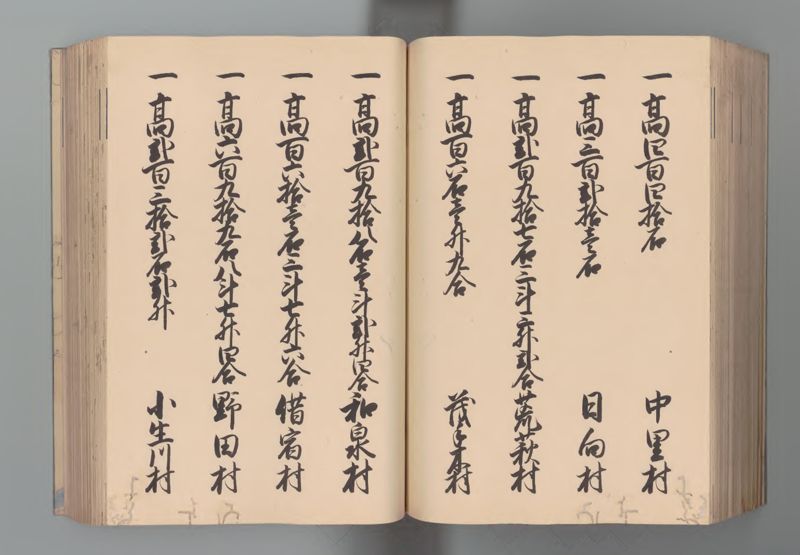 一高四百四拾石 中里村
一高三百弐拾壱石 日向村
一高弐百九拾七石三斗一升弐合 荒萩村
一高百六石壱升九合 村
一高弐百九拾八石壱斗弐升四合 和泉村
一高百六拾壱石三斗七升六合 借宿村
一高六百九拾九石八斗七升四合 野田村
一高弐百三拾弐石弐升 小生川村